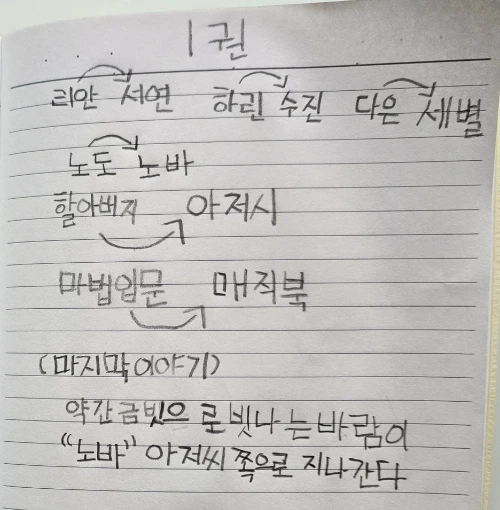 1권
리안 서연 하린 수진 다은 세별
노도 노바
할아버지 아저시
마법입문 매직북
(마지막이야기)
약간금빗으로빗나는바람이
"노바" 아저씨쪽으로 지나간다